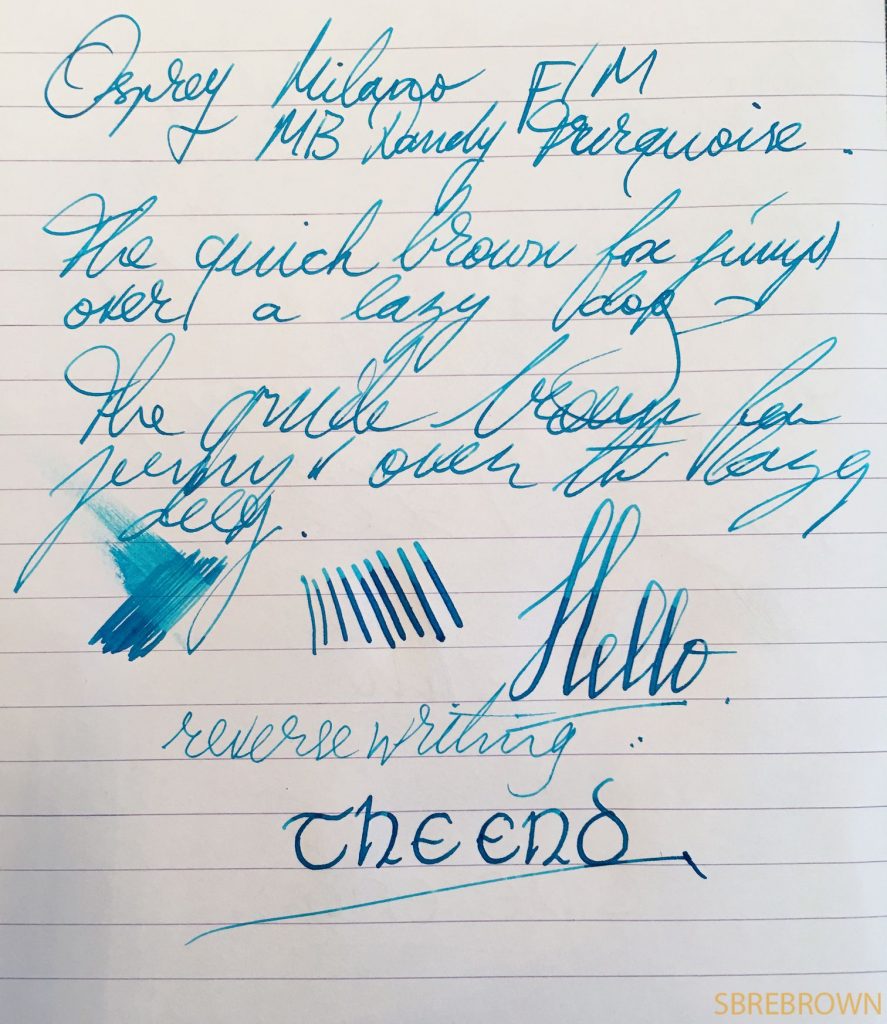 Osprey Milano F/M
+ MB Dandy Turquoise.
The quick brown fox jumps
over a lazy dog
The quick brown fox
jumps over the lazy
dog.
Hello.
reverse writing
The End
SBREBROWN